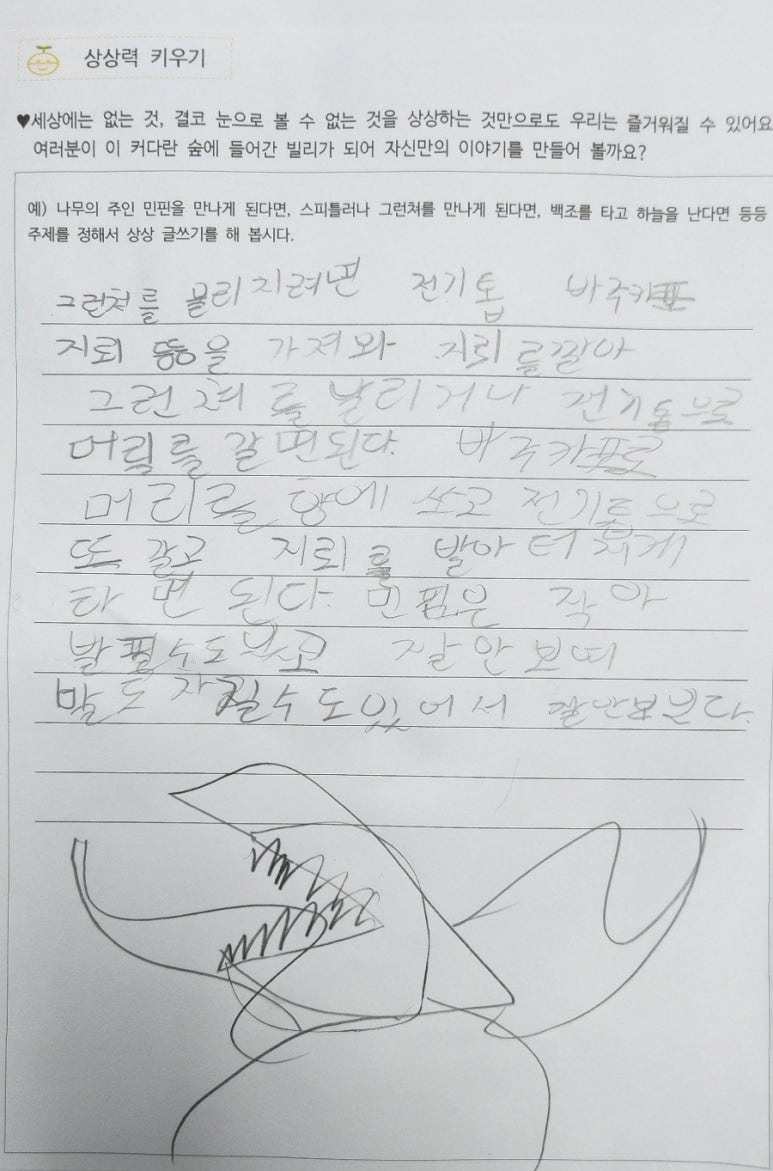 상상력 키우기
♥세상에는 없는 것, 결코 눈으로 볼 수 없는 것을 상상하는 것만으로도 우리는 즐거워질 수 있어요
여러분이 이 커다란 숲에 들어간 빌리가 되어 자신만의 이야기를 만들어 볼까요?
예) 나무의 주인 민핀을 만나게 된다면, 스피틀러나 그런쳐를 만나게 된다면, 백조를 타고 하늘을 난다면 등등
주제를 정해서 상상 글쓰기를 해 봅시다.
그런쳐를 물리치려면 전기톱 바주카포
지뢰 등을 가져와 지뢰를깔아
그런쳐를 날리거나 전기톱으로
머리를 갈면된다. 바주카포로
머리를 향에 쏘고 전기톱으로
또 갈고 지뢰를 발아 터지게
타면 된다. 민핌은 작아
발필수도 있고 잘 안보여
말도 자 수도있어서 잘안보